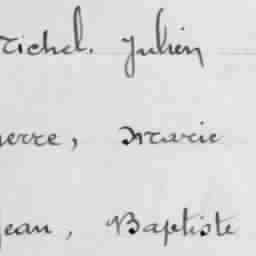 Michel. Julien
Pierre, Marie
Jean, Baptiste